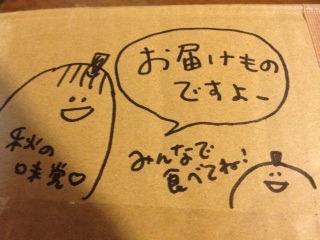 お届けもの
ですよー
秋の
味覚♡
みんなで
食べてね!